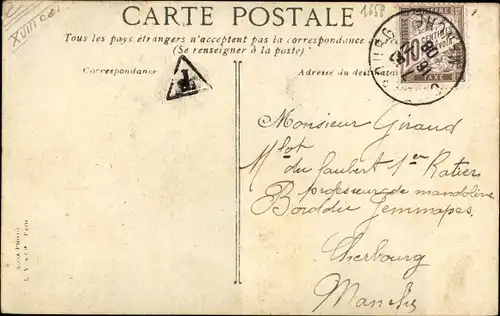 1658
XVIII
CARTE POSTALE
Tous les pays étrangers n'acceptent pas la correspondance
(Se renseigner à la poste)
Correspondance
Adresse du destinata
T
10 CENTIMES
TAXE
Monsieur Giraud
Mlot
du Jaubert 1er Ratier
professeur de mandoline
Borddu Jemmapes
Cherbourg
Manche